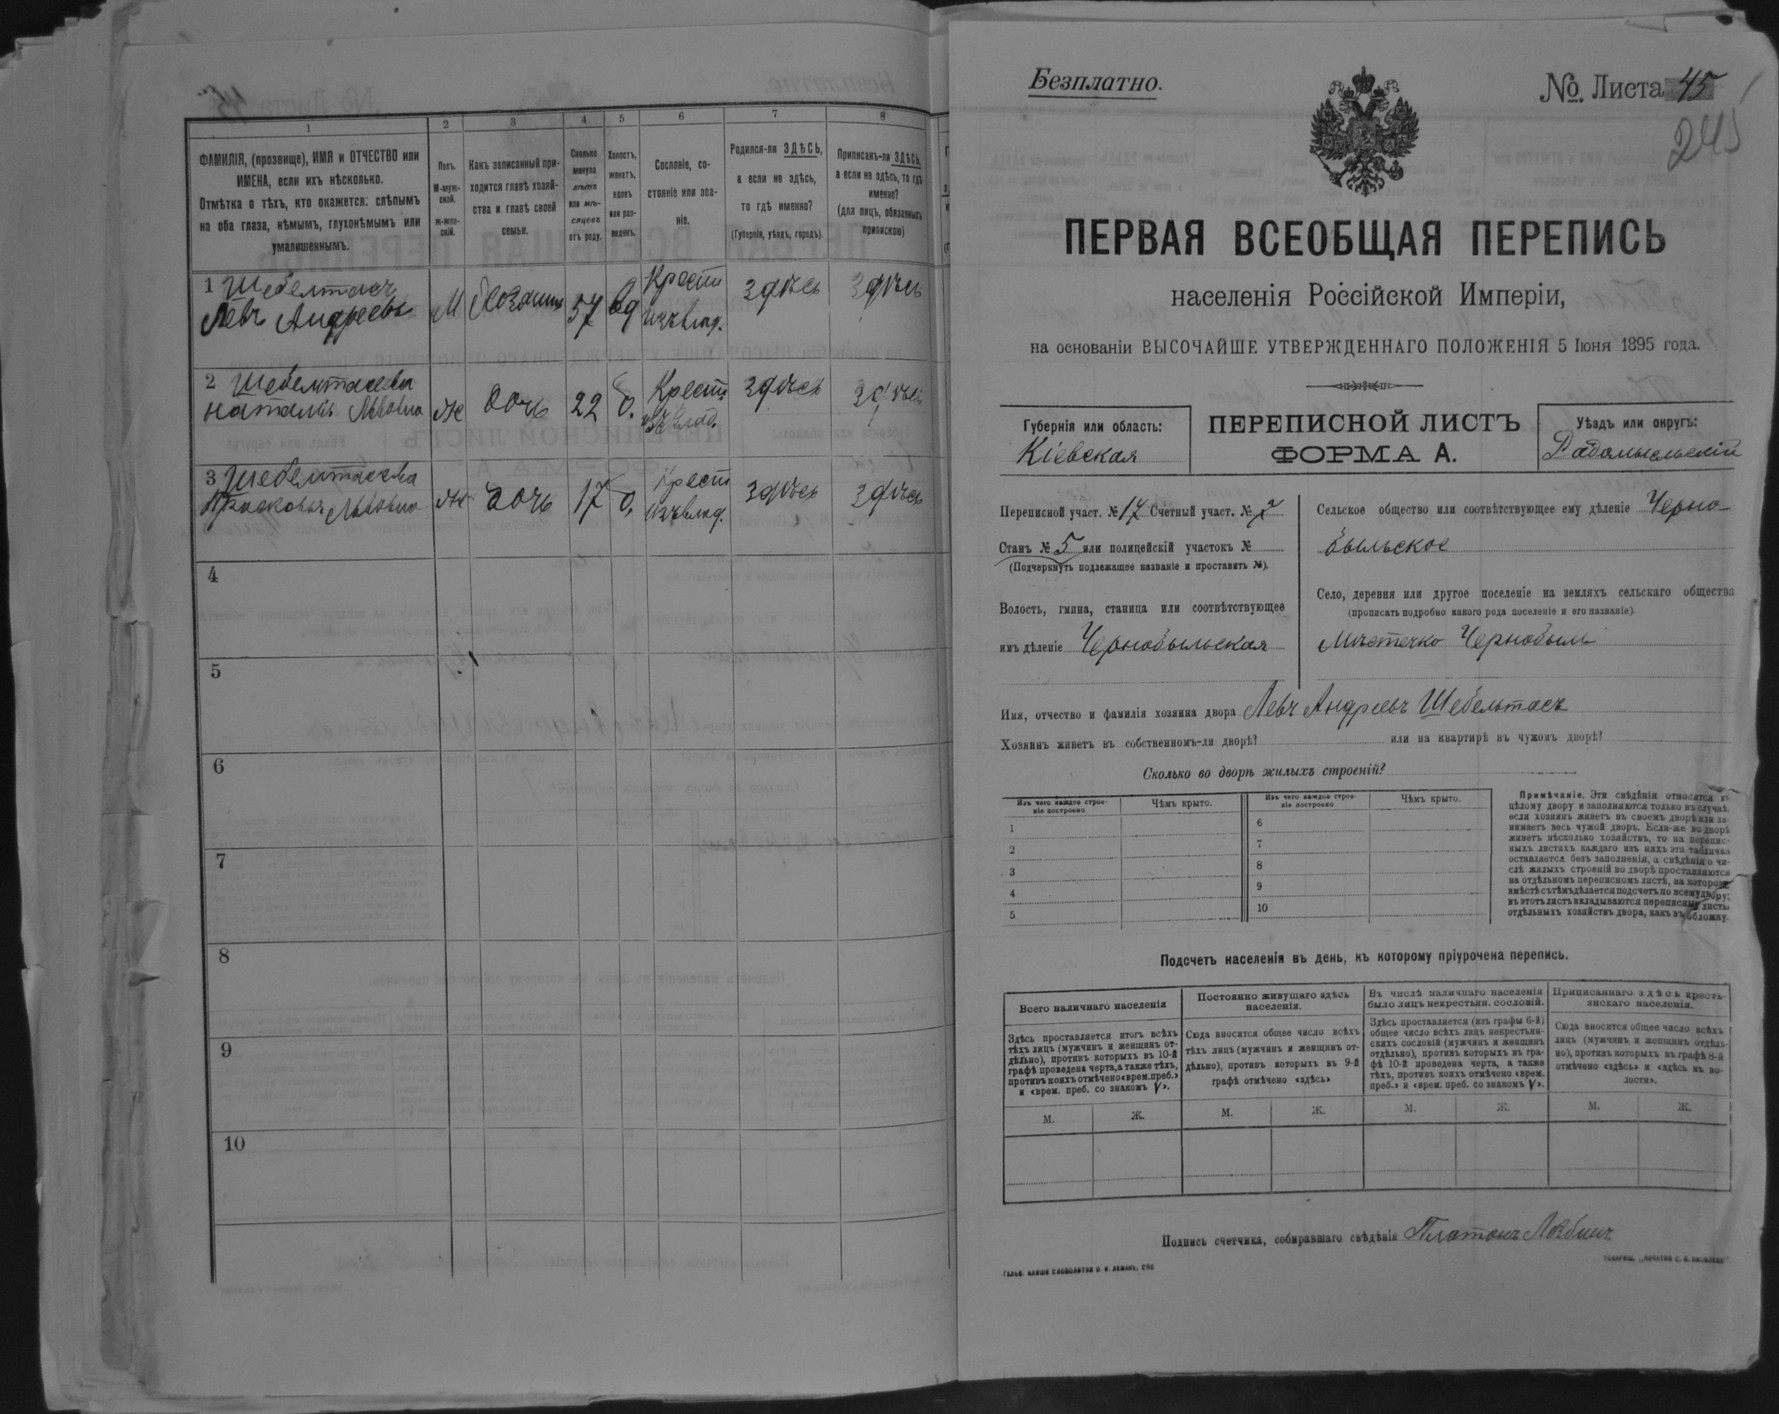 1
2
3
4
5
6
7
8
ФАМИЛІЯ, (прозвище), ИМЯ и ОТЧЕСТВО или
ИМЕНА, если ихъ нѣсколько.
Отмѣтка о тѣхъ, кто окажется: слѣпымъ
на оба глаза, нѣмымъ, глухонѣмымъ или
умалишеннымъ.
Полъ.
М-муж-
ской.
ж-жен-
скій.
Какъ записанный при-
ходится главѣ хозяй-
ства и главѣ своей
семьи.
Сколько
минуло
лѣтъ
или мѣ-
сяцевъ
отъ роду.
Холостъ,
женатъ,
вдовъ
или раз-
веденъ.
Сословіе, со-
стояніе или зва-
ніе.
Родился-ли ЗДѢСЬ,
а если не здѣсь,
то гдѣ именно?
(Губернія, уѣздъ, городъ).
Приписанъ-ли ЗДѢСЬ,
а если не здѣсь, то гдѣ
именно?
(для лицъ, обязанныхъ
припискою)
1 Шебелтасъ
Левъ Андреевъ
М
Хозяинъ
57
вд
Крест
изъ влад.
здѣсь
здѣсь
2 Шебелтасева
Наталія Львовна
ж
дочь
22
д.
Крест
изъ влад.
здѣсь
здѣсь
3 Шебелтасева
Львовна
ж
дочь
17
д.
Крест
изъ влад.
здѣсь
здѣсь
4
5
6
7
8
9
10
Безплатно.
№ Листа 45
245
ПЕРВАЯ ВСЕОБЩАЯ ПЕРЕПИСЬ
населенія Россійской Имперіи,
на основаніи ВЫСОЧАЙШЕ УТВЕРЖДЕННАГО ПОЛОЖЕНІЯ 5 Іюня 1895 года.
Губернія или область:
Кіевская
ПЕРЕПИСНОЙ ЛИСТЪ
ФОРМА А.
Уѣздъ или округъ:
Радомысльскій
Переписной участ. № 17 Счетный участ. № 2
Станъ № 5 или полицейскій участокъ №
(Подчеркнуть подлежащее названіе и проставить №).
Волость, гмина, станица или соотвѣтствующее
имъ дѣленіе Чернобыльская
Сельское общество или соотвѣтствующее ему дѣленіе Черно-
быльское
Село, деревня или другое поселеніе на земляхъ сельскаго общества
(прописать подробно какого рода поселеніе и его названіе).
Мѣстечко Чернобыль
Имя, отчество и фамилія хозяина двора Левъ Андреевъ Шебельтасъ
Хозяинъ живетъ въ собственномъ-ли дворѣ? или на квартирѣ въ чужомъ дворѣ?
Сколько во дворѣ жилыхъ строеній?
Изъ чего каждое строе-
ніе построено
Чѣмъ крыто.
Изъ чего каждое строе-
ніе построено
Чѣмъ крыто.
1
2
3
4
5
6
7
8
9
10
Примѣчаніе. Эти свѣдѣнія относятся къ
цѣлому двору и заполняются только въ случаѣ,
если хозяинъ живетъ въ своемъ дворѣ или за-
нимаетъ весь чужой дворъ. Если-же во дворѣ
живетъ нѣсколько хозяйствъ, то на перепис-
ныхъ листахъ каждаго изъ нихъ эта табличка
оставляется безъ заполненія, а свѣдѣнія о чи-
слѣ жилыхъ строеній во дворѣ проставляются
на отдѣльномъ переписномъ листѣ, на которомъ
вмѣстѣ съ тѣмъ дѣлается подсчетъ по всему двору;
въ этотъ листъ вкладываются переписные листы
отдѣльныхъ хозяйствъ двора, какъ въ обложку.
Подсчетъ населенія въ день, къ которому пріурочена перепись.
Всего наличнаго населенія
Здѣсь проставляется итогъ всѣхъ
тѣхъ лицъ (мужчинъ и женщинъ от-
дѣльно), противъ которыхъ въ 10-й
графѣ проведена черта, а также тѣхъ,
противъ коихъ отмѣчено «врем. преб.»
и «врем. преб. со знакомъ V».
Постоянно живущаго здѣсь
населенія.
Сюда вносится общее число всѣхъ
тѣхъ лицъ (мужчинъ и женщинъ от-
дѣльно), противъ которыхъ въ 9-й
графѣ отмѣчено «здѣсь»
Въ числѣ наличнаго населенія
было лицъ некрестьян. сословій.
Здѣсь проставляется (изъ графы 6-й)
общее число всѣхъ лицъ некрестьян-
скихъ сословій (мужчинъ и женщинъ
отдѣльно), противъ которыхъ въ гра-
фѣ 10-й проведена черта, а также
тѣхъ, противъ коихъ отмѣчено «врем.
преб.» и «врем. преб. со знакомъ V».
Приписаннаго здѣсь кресть-
янскаго населенія.
Сюда вносится общее число всѣхъ
лицъ (мужчинъ и женщинъ отдѣль-
но), противъ которыхъ въ графѣ 8-й
отмѣчено «здѣсь» и «здѣсь въ во-
лости».
М.
Ж.
М.
Ж.
М.
Ж.
М.
Ж.
Подпись счетчика, собиравшаго свѣдѣнія Платонъ